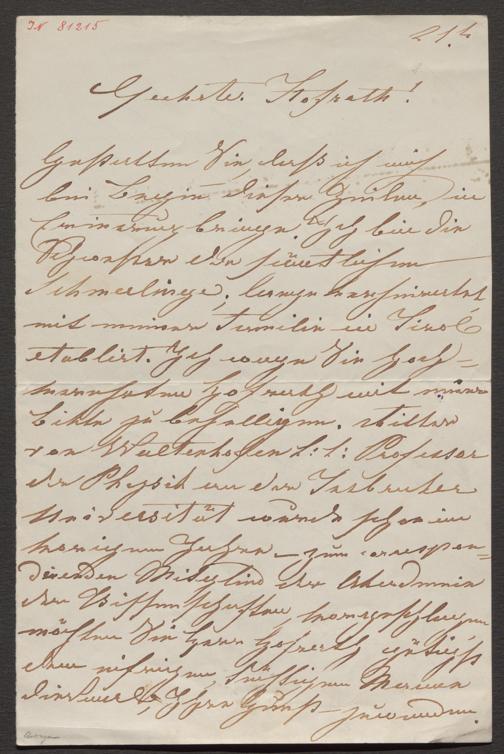 IN 81215
21.
Geehrter Hofrath!
Gestatten Sie, daß ich mich
bei Beginn dieser Zeilen, in
Erinnerung bringe. Ich bin die
Schwester der
Schmerlinge,
mit meiner Familie in Tirol
etablirt. Ich wage Sie hoch=
Hofrath mit meiner
Bitte zu belästigen. Ritter
von Waltenhofen k: k: Professor
der Physik an der Insbrucker
Universität wurde schon im
vorigen Jahre – zum correspon=
direnden Mitglied der Akademie
der Wissenschaften vorgeschlagen
möchten Sie Herr Hofrath gütigst
dem eifrigen, tüchtigen Manne
Ihre Gunst zuwenden.